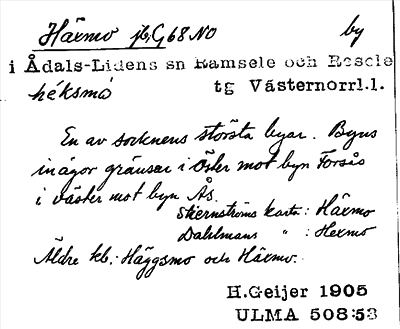 Härmo jb, G 68 NO by
i Ådals-Lidens sn Ramsele och Resele
héksmó tg Västernorrl.l.
En av socknens största byar. Byns
inägor gränsar i öster mot byn Forsås
i väster mot byn Ås.
Stiernströms karta: Härmo
Dahlmans " : Hexmo
Äldre kb.: Häggsmo och Härmo.
H.Geijer 1905
ULMA 508:53